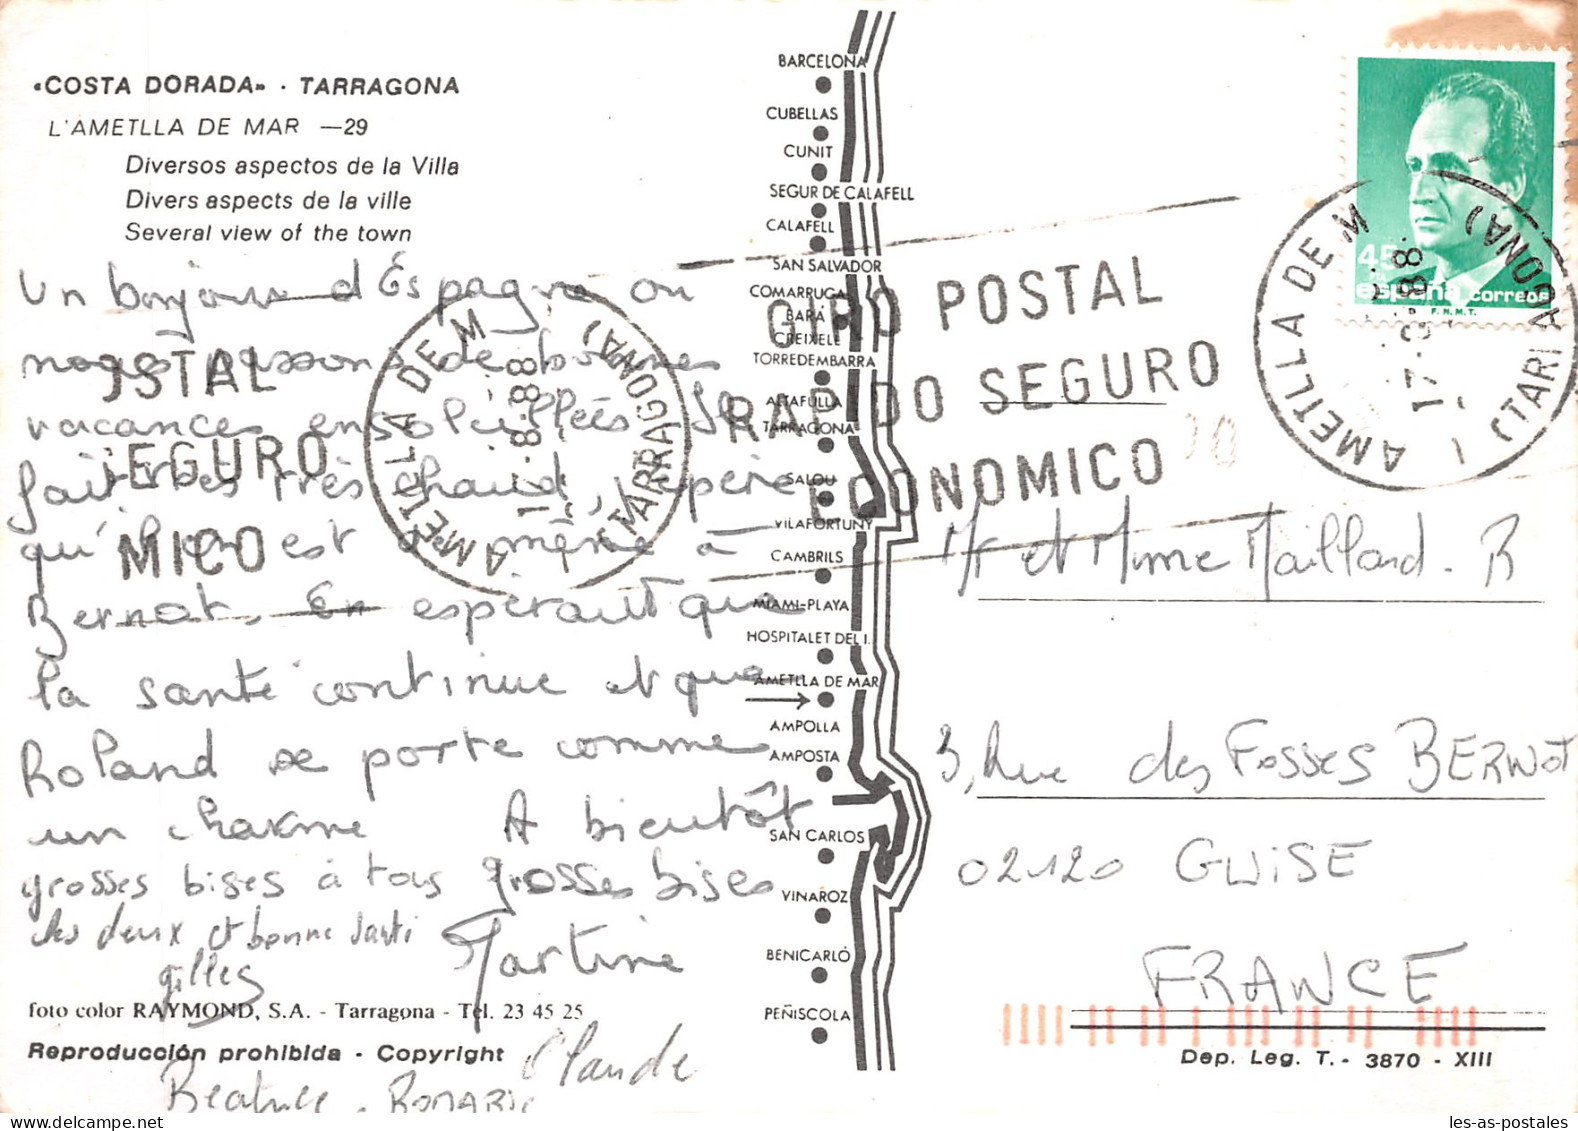 «COSTA DORADA» · TARRAGONA
L'AMETLLA DE MAR —29
Diversos aspectos de la Villa
Divers aspects de la ville
Several view of the town
Un bonjour d'Espagne ou
nous passons de bonnes
vacances ensoleillées Il
fait très très chaud, j'espère
qu'il en est de même à
Bernot. En espérant que
la santé continue et que
Roland se porte comme
un charme A bientôt
grosses bises à tous grosses bises
les deux et bonne santé
Gilles Martine
Claude
Béatrice. ROMARIC
foto color RAYMOND, S.A. - Tarragona - Tel. 23 45 25
Reproducción prohibida - Copyright
BARCELONA
CUBELLAS
CUNIT
SEGUR DE CALAFELL
CALAFELL
SAN SALVADOR
COMARRUGA
BARÁ
CREIXELL
TORREDEMBARRA
ALTAFULLA
TARRAGONA
SALOU
VILAFORTUNY
CAMBRILS
MIAMI-PLAYA
HOSPITALET DEL I.
AMETLLA DE MAR
AMPOLLA
AMPOSTA
SAN CARLOS
VINAROZ
BENICARLÓ
PEÑISCOLA
OSTAL
SEGURO
MICO
AMETLLA DE M
(TARRAGONA)
GIRO POSTAL
RAPIDO SEGURO
ECONOMICO
AMETLLA DE M
(TARRAGONA)
45
españa correos
F.N.M.T.
Mr et Mme Maillard. R
3, Rue des Fosses BERNOT
02120 GUISE
FRANCE
Dep. Leg. T. - 3870 - XIII
les-as-postales